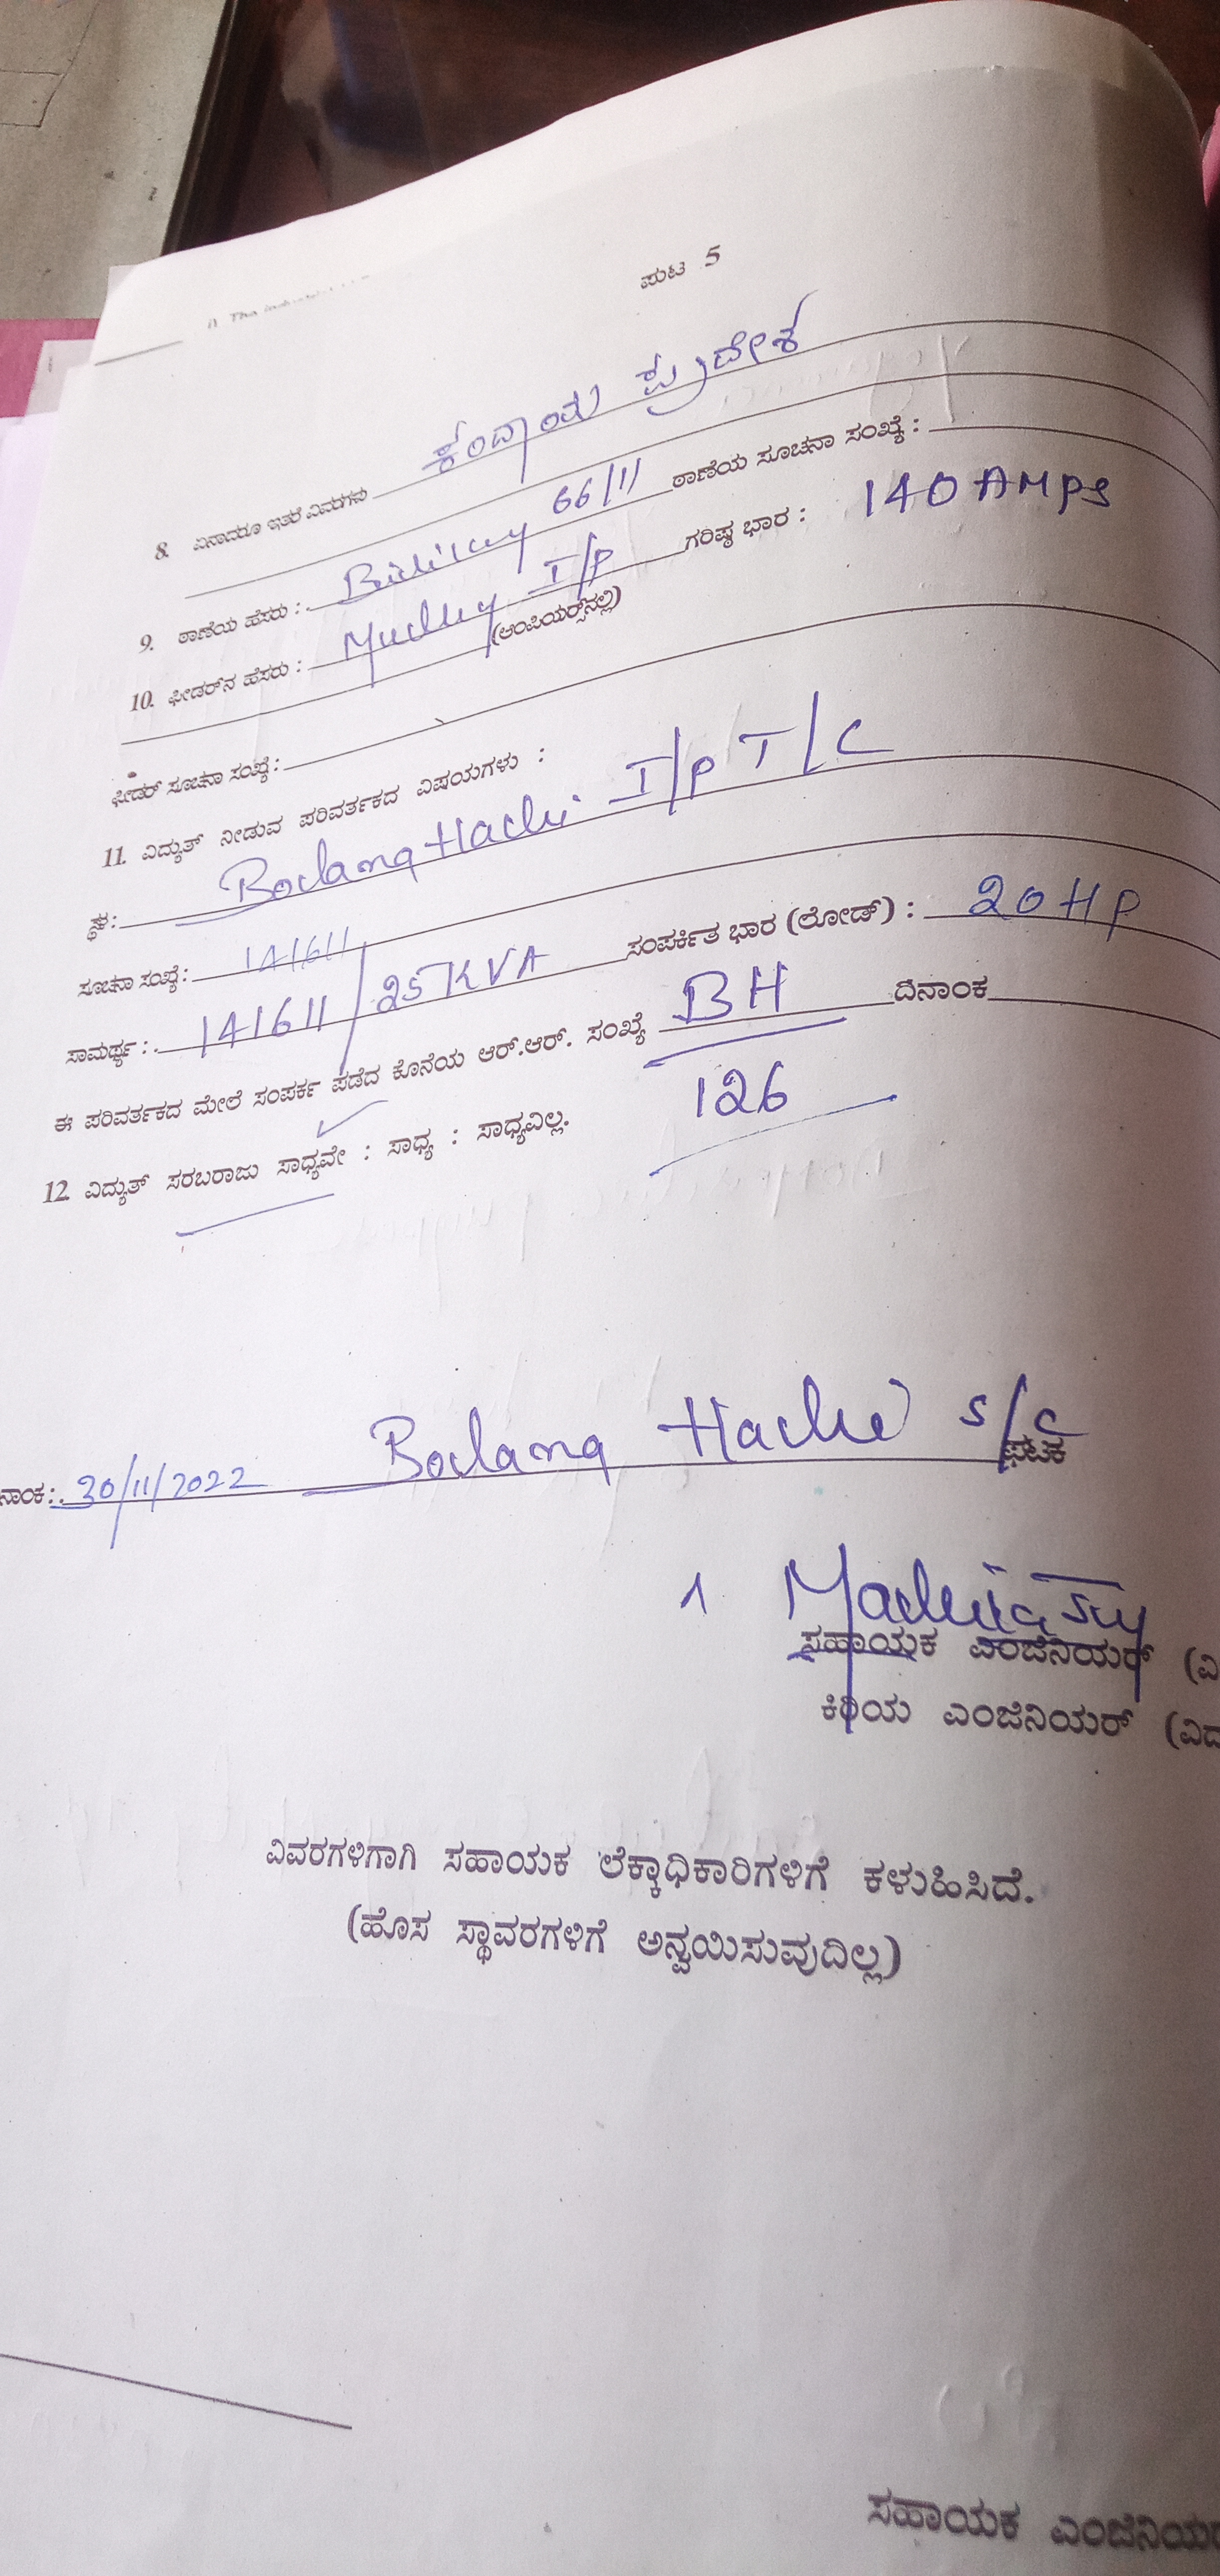 ಪುಟ 5
8. ಏನಾದರೂ ಇತರೆ ವಿವರಗಳು ಕಂದಾಯ ಪ್ರದೇಶ
9. ಠಾಣೆಯ ಹೆಸರು : 66/11 ಠಾಣೆಯ ಸೂಚನಾ ಸಂಖ್ಯೆ :
10. ಫೀಡರ್‌ನ ಹೆಸರು : I/P ಗರಿಷ್ಠ ಭಾರ : 140 AMPS
(ಆಂಪಿಯರ್‍ಸ್‌ನಲ್ಲಿ)
ಫೀಡರ್ ಸೂಚನಾ ಸಂಖ್ಯೆ :
11. ವಿದ್ಯುತ್ ನೀಡುವ ಪರಿವರ್ತಕದ ವಿಷಯಗಳು :
ಸ್ಥಳ : I/P T/C
ಸೂಚನಾ ಸಂಖ್ಯೆ : 141611
ಸಾಮರ್ಥ್ಯ : 141611/25KVA ಸಂಪರ್ಕಿತ ಭಾರ (ಲೋಡ್) : 20 HP
ಈ ಪರಿವರ್ತಕದ ಮೇಲೆ ಸಂಪರ್ಕ ಪಡೆದ ಕೊನೆಯ ಆರ್.ಆರ್. ಸಂಖ್ಯೆ BH ದಿನಾಂಕ
126
12. ವಿದ್ಯುತ್ ಸರಬರಾಜು ಸಾಧ್ಯವೇ : ಸಾಧ್ಯ : ಸಾಧ್ಯವಿಲ್ಲ.
ನಾಂಕ : 30/11/2022 S/C ಘಟಕ
ಸಹಾಯಕ ಎಂಜಿನಿಯರ್ (ವಿ
ಕಿರಿಯ ಎಂಜಿನಿಯರ್ (ವಿದ
ವಿವರಗಳಿಗಾಗಿ ಸಹಾಯಕ ಲೆಕ್ಕಾಧಿಕಾರಿಗಳಿಗೆ ಕಳುಹಿಸಿದೆ.
(ಹೊಸ ಸ್ಥಾವರಗಳಿಗೆ ಅನ್ವಯಿಸುವುದಿಲ್ಲ)
ಸಹಾಯಕ ಎಂಜಿನಿಯರ